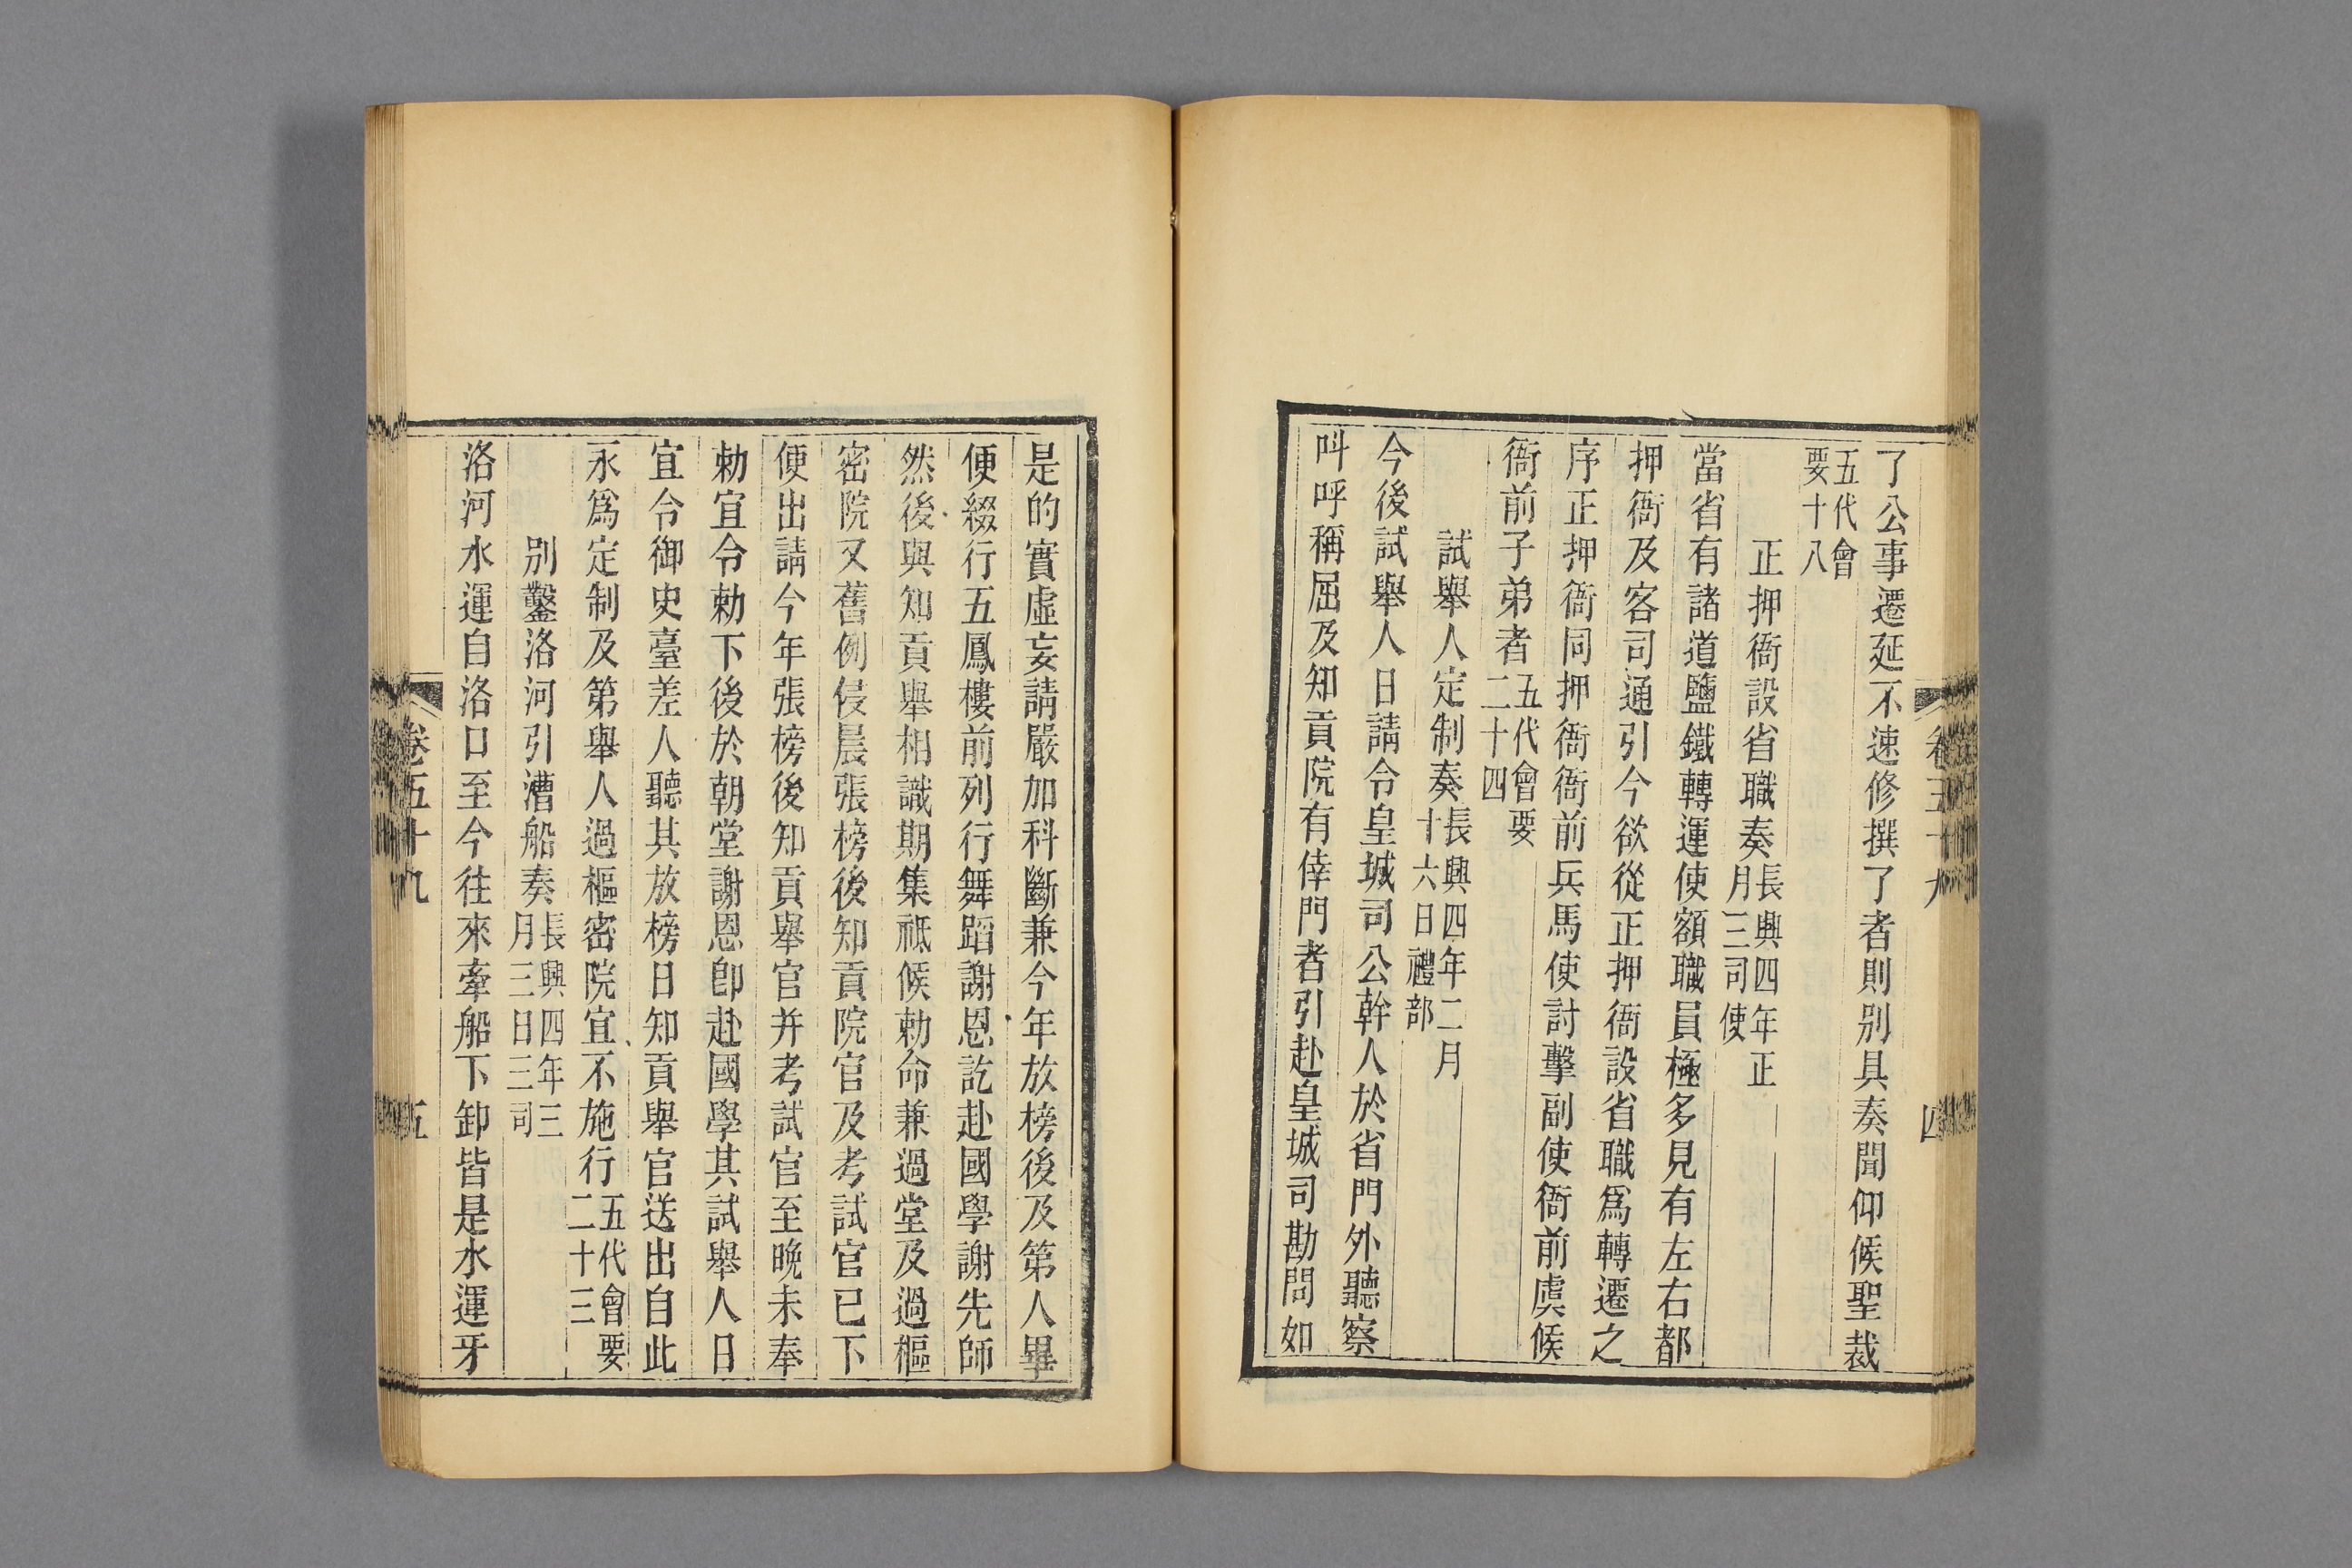 了公事遷延不速修撰了者則別具奏聞仰候聖裁
五代會
要十八
正押衙設省職奏長興四年正
月三司使
當省有諸道鹽鐵轉運使額職員極多見有左右都
押衙及客司通引今欲從正押衙設省職爲轉遷之
序正押衙同押衙衙前兵馬使討擊副使衙前虞候
衙前子弟者五代會要
二十四
試舉人定制奏長興四年二月
十六日禮部
今後試舉人日請令皇城司公幹人於省門外聽察
叫呼稱屈及知貢院有倖門者引赴皇城司勘問如
卷五十九
四
是的實虛妄請嚴加科斷兼今年放榜後及第人畢
便綴行五鳳樓前列行舞蹈謝恩訖赴國學謝先師
然後與知貢舉相識期集祗候勅命兼過堂及過樞
密院又舊例侵晨張榜後知貢院官及考試官已下
便出請今年張榜後知貢舉官并考試官至晚未奉
勅宜令勅下後於朝堂謝恩卽赴國學其試舉人日
宜令御史臺差人聽其放榜日知貢舉官送出自此
永爲定制及第舉人過樞密院宜不施行五代會要
二十三
別鑿洛河引漕船奏長興四年三
月三日三司
洛河水運自洛口至今往來牽船下卸皆是水運牙
卷五十九
五